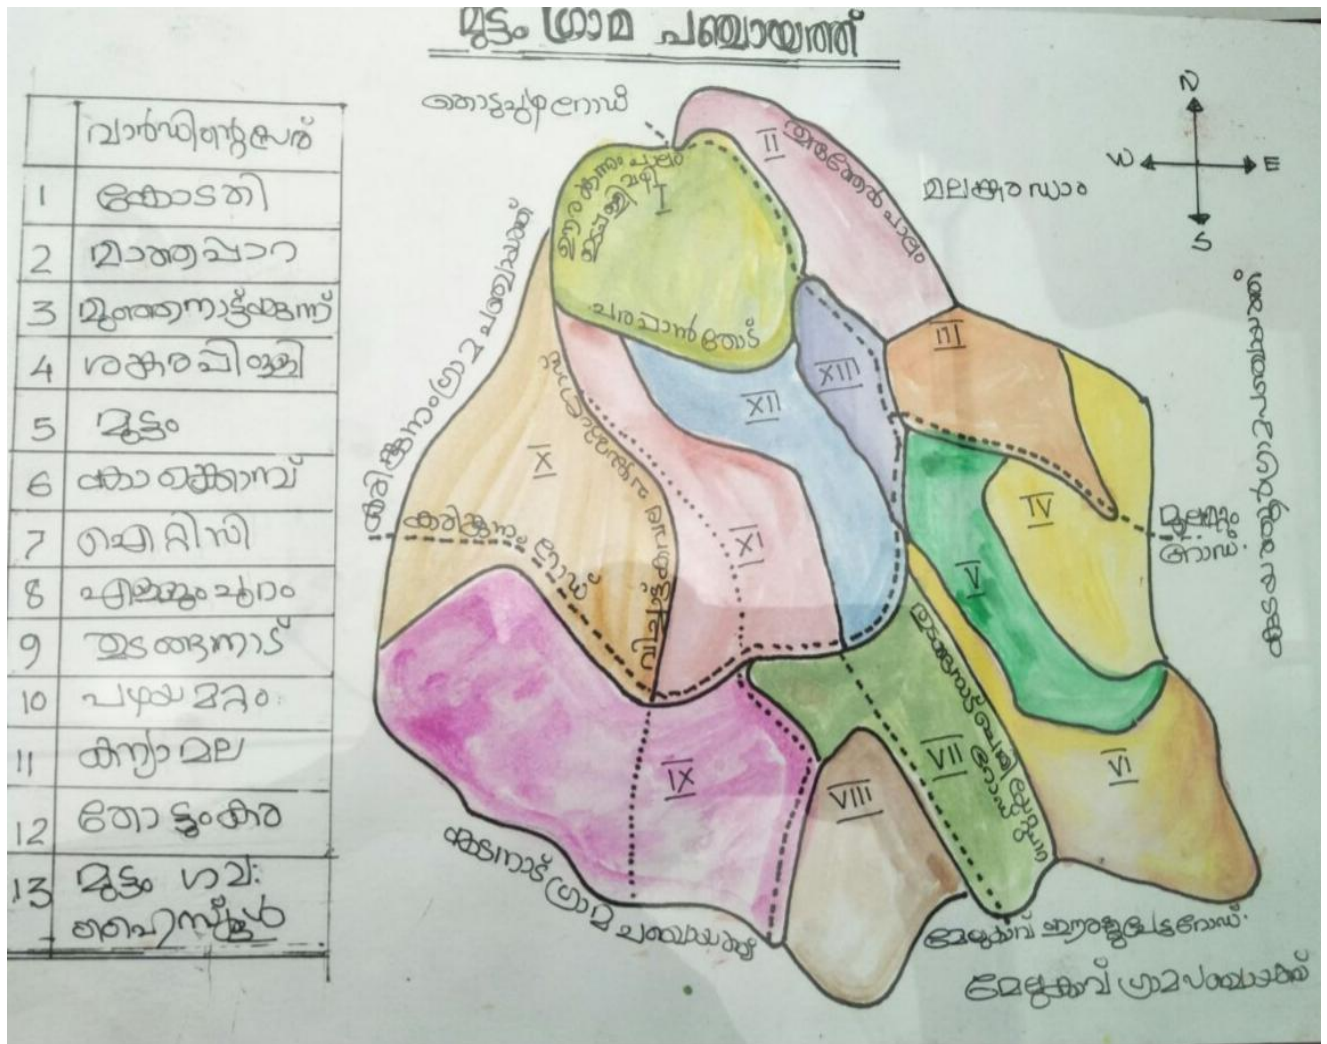 മുട്ടം ഗ്രാമ പഞ്ചായത്ത്
വാർഡിന്റെപേര്
1 കോടതി
2 മാത്തപ്പാറ
3 മുഞ്ഞനാട്ടുകുന്ന്
4 ശങ്കരപ്പിള്ളി
5 മുട്ടം
6 കാക്കൊമ്പ്
7 ഐറ്റിസി
8 എള്ളുംപുറം
9 തുടങ്ങനാട്
10 പഴയമറ്റം
11 കന്യാമല
12 തോട്ടുംകര
13 മുട്ടം ഗവ:
ഹൈസ്കൂൾ
തൊടുപുഴറോഡ്
N
W
E
S
മലങ്കരഡാം
I
II
III
IV
V
VI
VII
VIII
IX
X
XI
XII
XIII
പരപ്പാൻതോട്
കരിങ്കുന്നം ഗ്രാമ പഞ്ചായത്ത്
കരിങ്കുന്നം റോഡ്
മൂലമറ്റം
റോഡ്
കുടയത്തൂർഗ്രാമപഞ്ചായത്ത്
കടനാട് ഗ്രാമ പഞ്ചായത്തു
മേലുകാവ് ഈരാറ്റുപേട്ടറോഡ്
മേലുകാവ് ഗ്രാമപഞ്ചായത്ത്